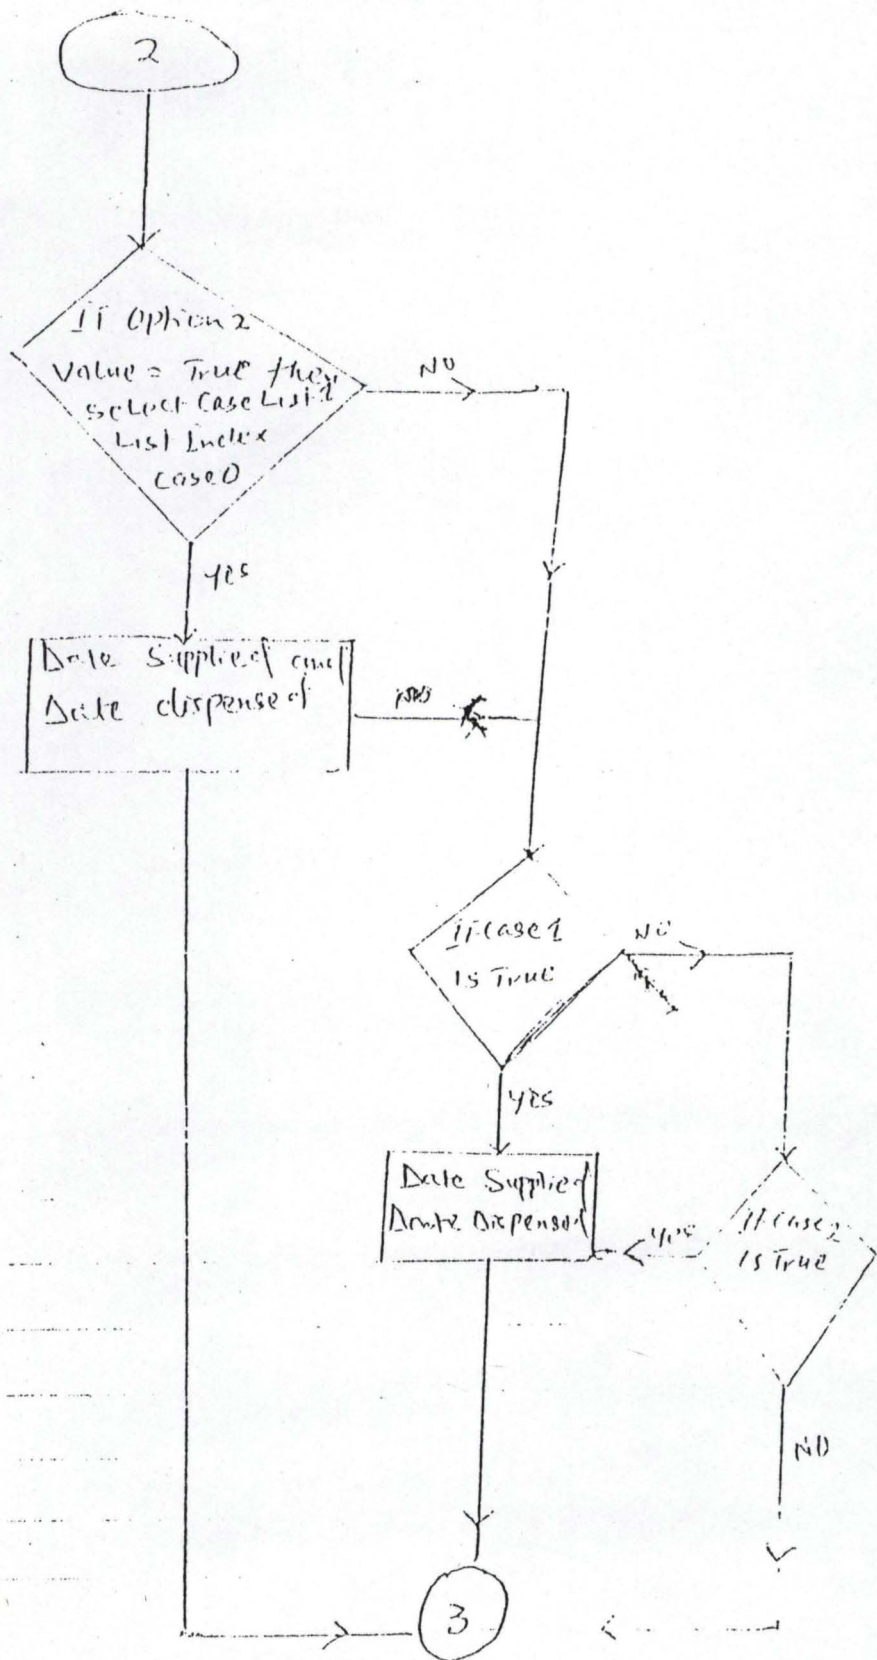 2
If Option 2
Value = True then
Select Case List 1
List Index
Case 0
NO
YES
Date Supplied and
Date dispensed
NO
If Case 1
Is True
NO
YES
Date Supplied
Date Dispensed
YES
If Case 2
Is True
NO
3